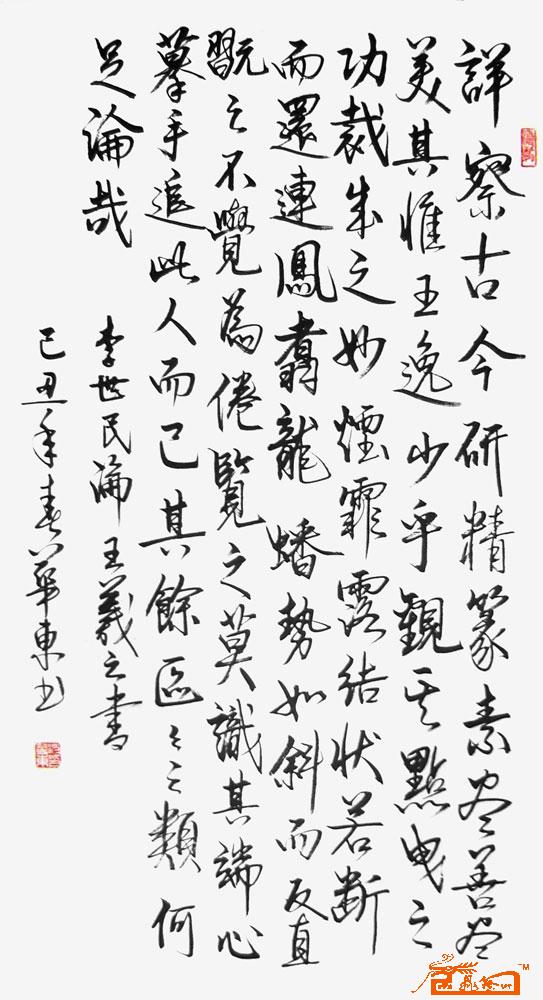 詳察古今研精篆素尽善尽
美其惟王逸少乎觀其點曳之
功裁成之妙煙霏露結狀若斷
而還連鳳翥龍蟠勢如斜而反直
翫之不覺為倦覽之莫識其端心
摹手追此人而已其餘區々之類何
足論哉
李世民論王羲之書
己丑年春華東书